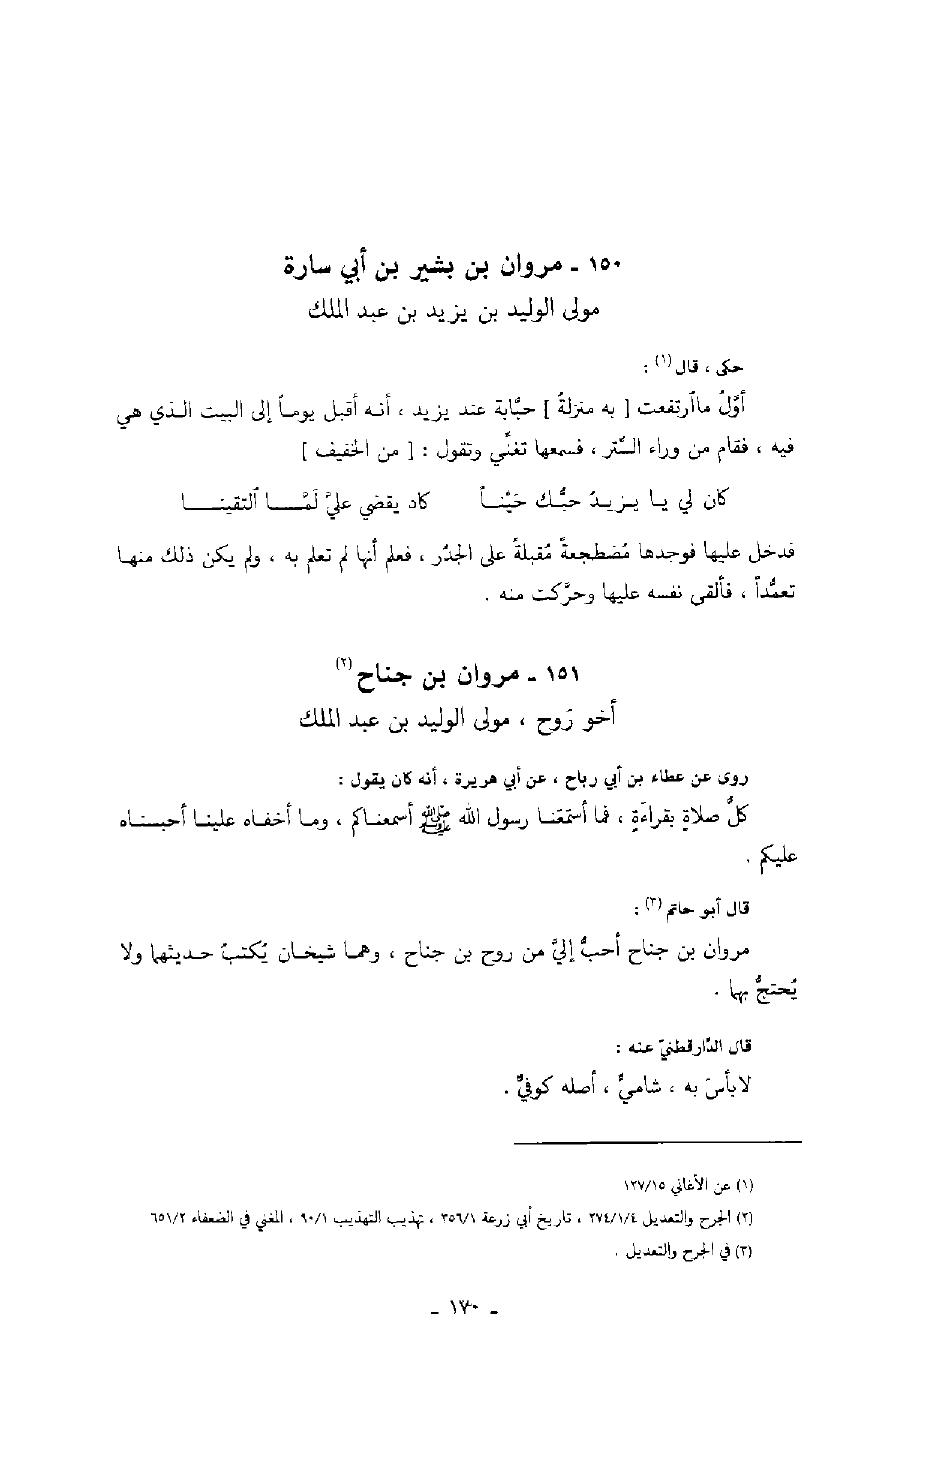 ١٥٠ - مروان بن بشير بن أبي سارة
مولى الوليد بن يزيد بن عبد الملك
حكى ، قال(١) :
أوَّلُ ماٱرتفعت [ به منزلةُ ] حبَّابة عند يزيد ، أنه أقبل يوماً إلى البيت الذي هي
فيه ، فقام من وراء السِّتر ، فسمعها تغنِّي وتقول : [ من الخفيف ]
كان لي يا يزيدُ حبُّك حَيْناً كاد يقضي عليَّ لَمَّا ٱلتقينا
فدخل عليها فوجدها مُضطجعةً مُقبلةً على الجدُر ، فعلم أنها لم تعلم به ، ولم يكن ذلك منها
تعمُّداً ، فألقى نفسه عليها وحرَّكت منه .
١٥١ - مروان بن جناح(٢)
أخو رَوح ، مولى الوليد بن عبد الملك
روى عن عطاء بن أبي رباح ، عن أبي هريرة ، أنه كان يقول :
كلُّ صلاةٍ بقراءَةٍ ، فما أسمَعَنا رسول الله ﷺ أسمعناكم ، وما أخفاه علينا أحبسناه
عليكم .
قال أبو حاتم(٣) :
مروان بن جناح أحبُّ إليَّ من روح بن جناح ، وهما شيخان يُكتبُ حديثهما ولا
يُحتجُّ بهما .
قال الدَّارقطنيّ عنه :
لابأسَ به ، شاميٌّ ، أصله كوفيٌّ .
(١) عن الأغاني ١٢٧/١٥
(٢) الجرح والتعديل ٢٧٤/١/٤ ، تاريخ أبي زرعة ٣٥٦/١ ، تهذيب التهذيب ٩٠/١ ، المغني في الضعفاء ٦٥١/٢
(٣) في الجرح والتعديل .
- ١٧٠ -